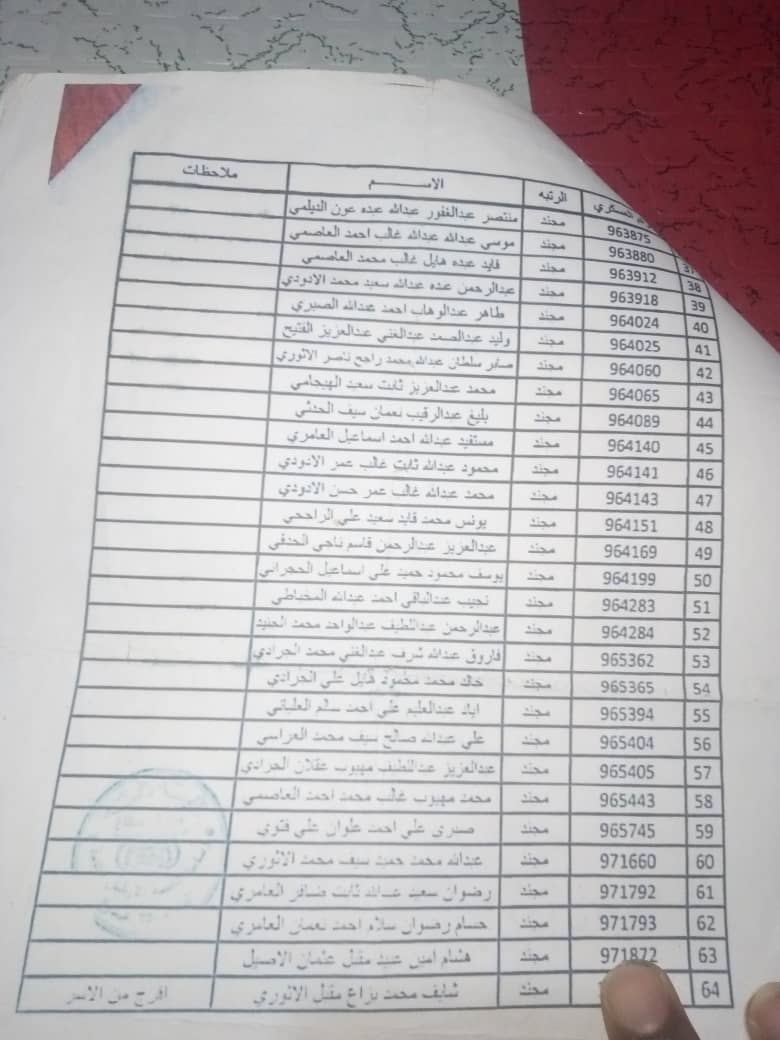 العسكري الرتبه الاســـــم ملاحظات
963875 مجند منتصر عبدالغفور عبدالله عبده عون الديلمي
37 963880 مجند موسي عبدالله عبدالله غالب احمد العاصمي
38 963912 مجند قايد عبده هايل غالب محمد العاصمي
39 963918 مجند عبدالرحمن عبده عبدالله سعيد محمد الادودي
40 964024 مجند طاهر عبدالوهاب احمد عبدالله الصبري
41 964025 مجند وليد عبدالصمد عبدالغني عبدالعزيز الفتيح
42 964060 مجند صابر سلطان عبدالله محمد راجح ناصر الاثوري
43 964065 مجند محمد عبدالعزيز ثابت سعيد الهيجامي
44 964089 مجند بليغ عبدالرقيب نعمان سيف الحدثي
45 964140 مجند مستفيد عبدالله احمد اسماعيل العامري
46 964141 مجند محمود عبدالله ثابت غالب عمر الادودي
47 964143 مجند محمد عبدالله غالب عمر حسن الادودي
48 964151 مجند يونس محمد قايد سعيد علي الراجحي
49 964169 مجند عبدالعزيز عبدالرحمن قاسم ناجي الحدقي
50 964199 مجند يوسف محمود حميد علي اسماعيل الحجراني
51 964283 مجند نجيب عبدالباقي احمد عبدالله المخباطي
52 964284 مجند عبدالرحمن عبداللطيف عبدالواحد محمد الجنيد
53 965362 مجند فاروق عبدالله شرف عبدالغني محمد الجرادي
54 965365 مجند خالد محمد محمود هايل علي الجرادي
55 965394 مجند اياد عبدالعليم علي احمد سالم العلياني
56 965404 مجند علي عبدالله صالح سيف محمد العراسي
57 965405 مجند عبدالعزيز عبداللطيف مهيوب عقلان الجرادي
58 965443 مجند محمد مهيوب غالب محمد احمد العاصمي
59 965745 مجند صبري علي احمد علوان علي
60 971660 مجند عبدالله محمد حميد سيف محمد الاثوري
61 971792 مجند رضوان سعيد عبدالله ثابت ظافر العامري
62 971793 مجند حسام رضوان سلام احمد نعمان العامري
63 971872 مجند هشام امين عبيد مقبل عثمان الاصيل
64 مجند شايف محمد هزاع مقبل الاثوري افرج من الاسر